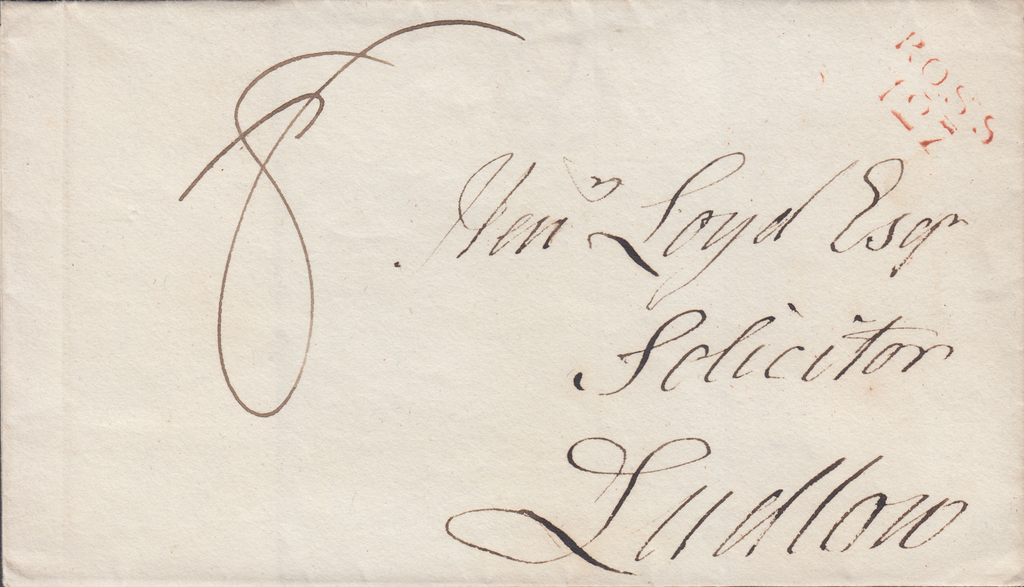 ROSS
8
Henʸ Loyd Esqr
Solicitor
Ludlow